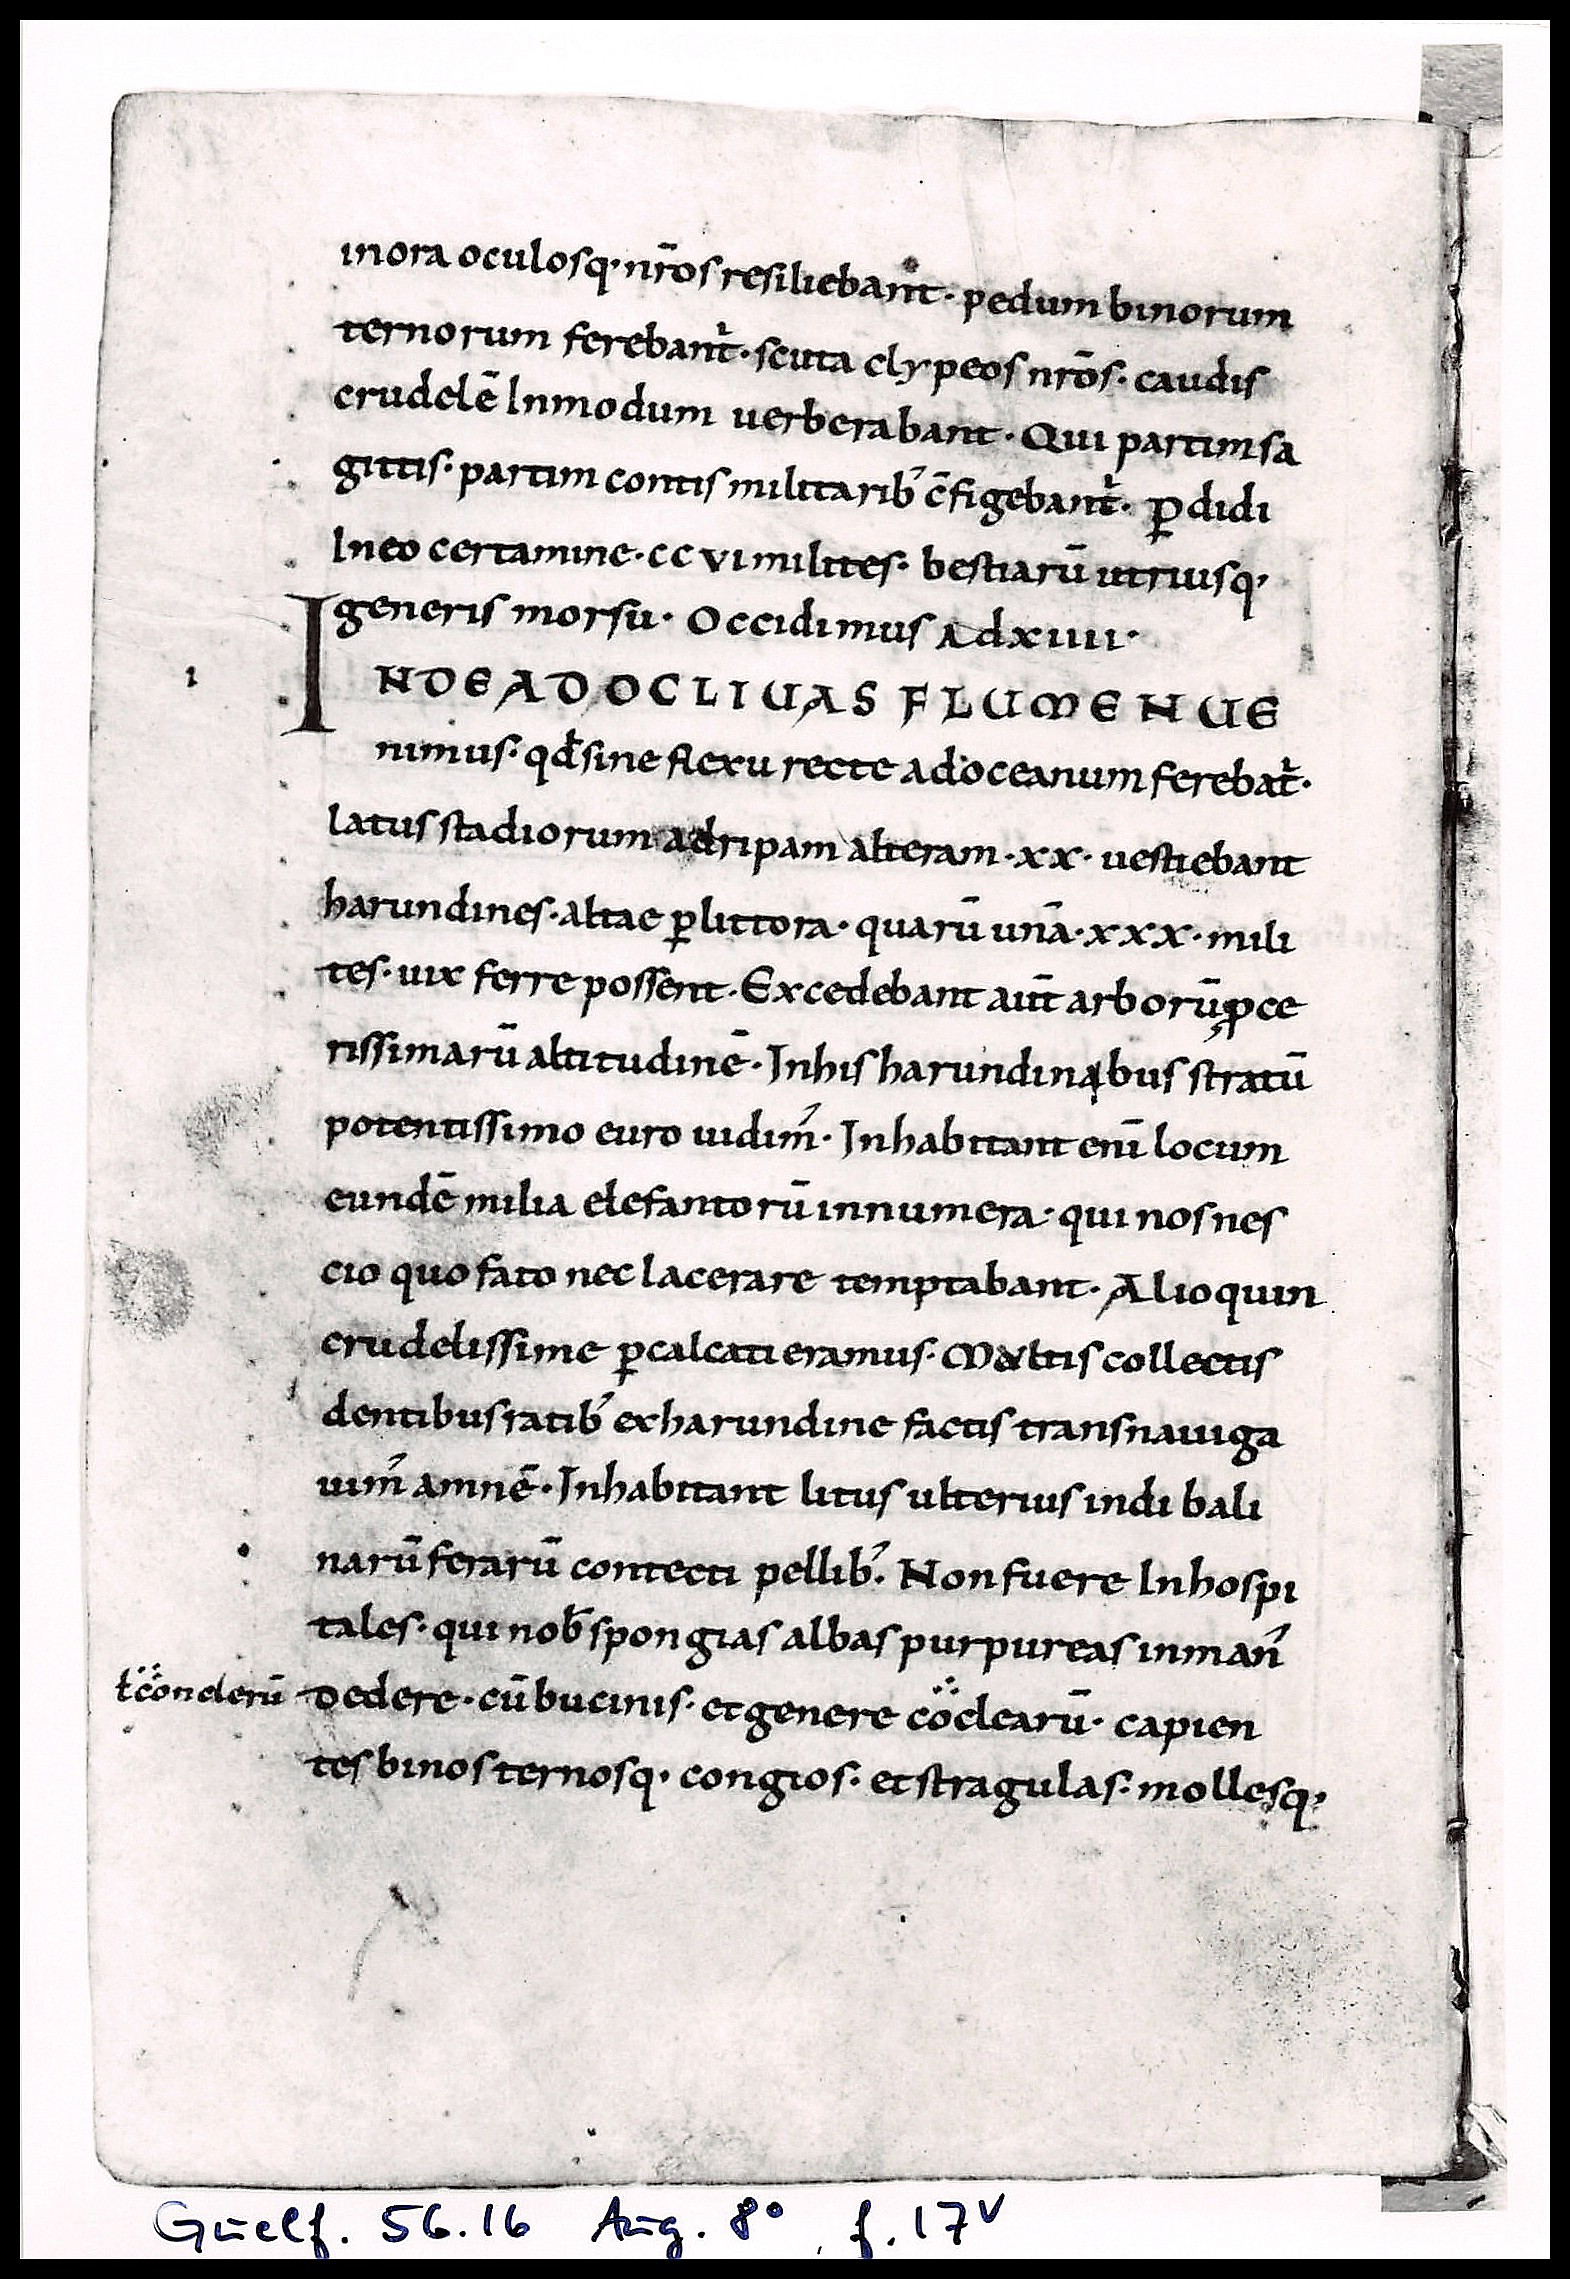 inora oculosq· nr̄os resiliebant· pedum binorum
ternorum ferebant᷑· scuta clypeos nr̄os· caudis
crudelē Inmodum uerberabant· Qui partim sa
gittis· partim contis militarib᾿ c̄figebant᷑· ꝑdidi
Ineo certamine· cc vi milites· bestiarū utriusq·
generis morsu· Occidimus adxiiii·
1 INDE AD OCLIUAS FLUMEN UE
nimus· qđ sine flexu recte ad oceanum ferebat᷑·
latus stadiorum ad ripam alteram· xx· uestiebant
harundines· altae ꝑ littora· quarū unā· xxx· mili
tes· uix ferre possent· Excedebant aut̄ arborū ꝓce
rissimarū altitudinē· In his harundinibus stratū
potentissimo euro uidim᾿· Inhabitant enī locum
eundē milia elefantorū innumera· qui nos nes
cio quo fato nec lacerare temptabant· Alioquin
crudelissime ꝑcalcati eramus· Multis collectis
dentibus ratib᾿ ex harundine factis transnauiga
uim᾿ amnē· Inhabitant litus ulterius indi bali
narū ferarū contecti pellib᾿· Non fuere Inhospi
tales· qui nob̄ spongias albas purpureas in man᾿
ƚ conclerū dedere· cū bucinis· et genere coclearū· capien
tes binos ternosq· congios· et stragulas· mollesq·
Guelf. 56.16 Aug. 8°, f. 17v